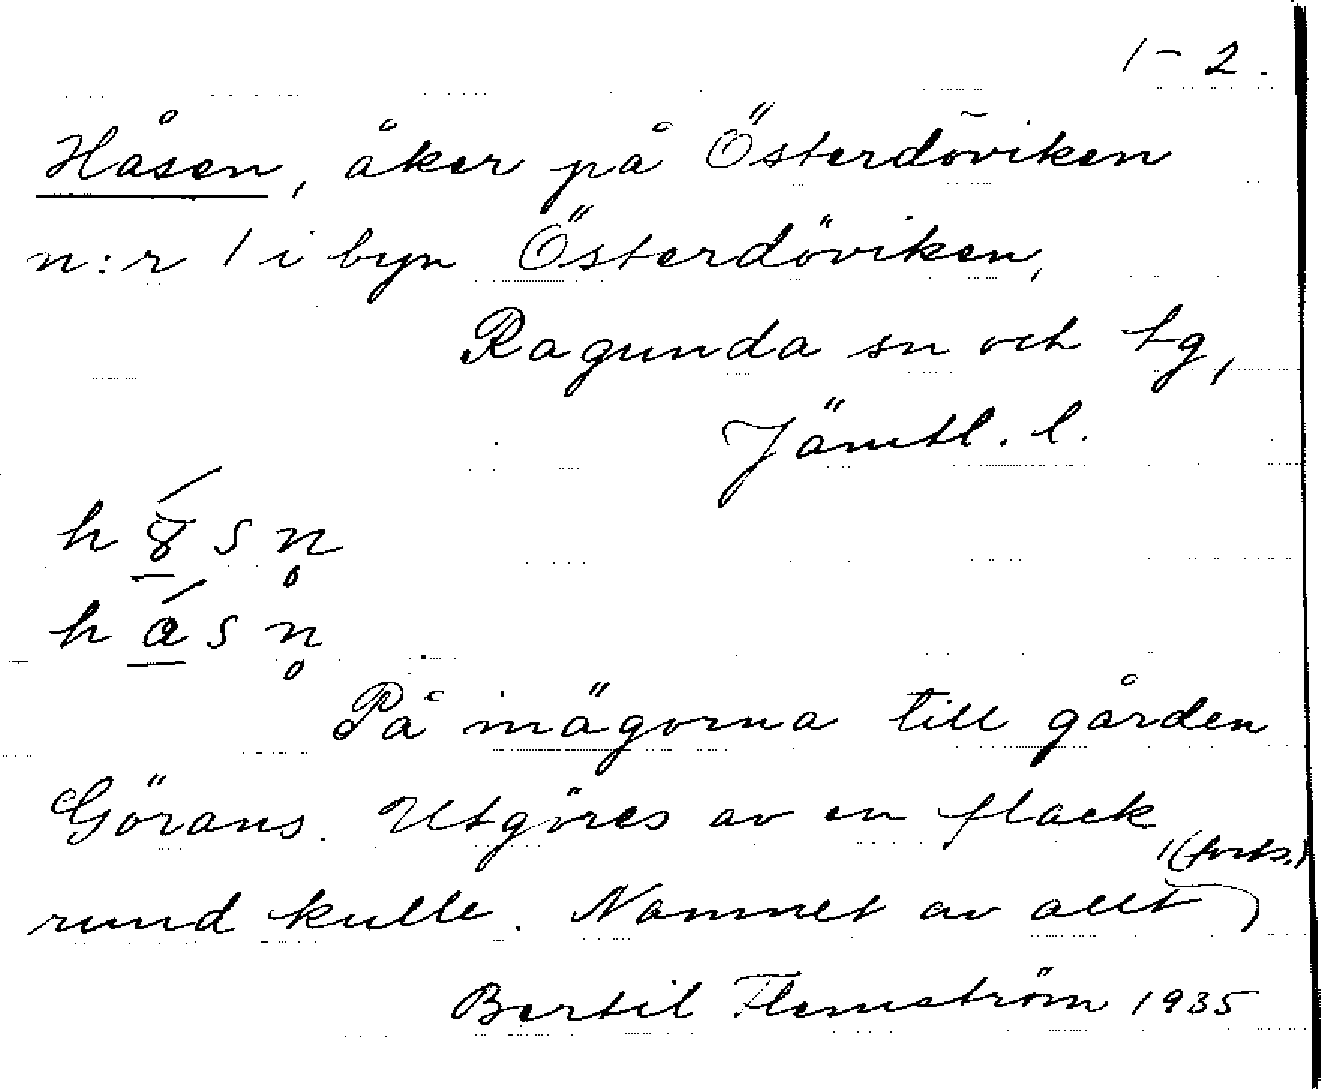 1-2.
Håsen, åker på Österdöviken
n:r 1 i byn Österdöviken,
Ragunda sn och tg,
Jämtl. l.
h8́sn̥
hásn̥
På inägorna till gården
Görans. Utgöres av en flack
rund kulle. Namnet av allt
(forts.)
Bertil Flemström 1935